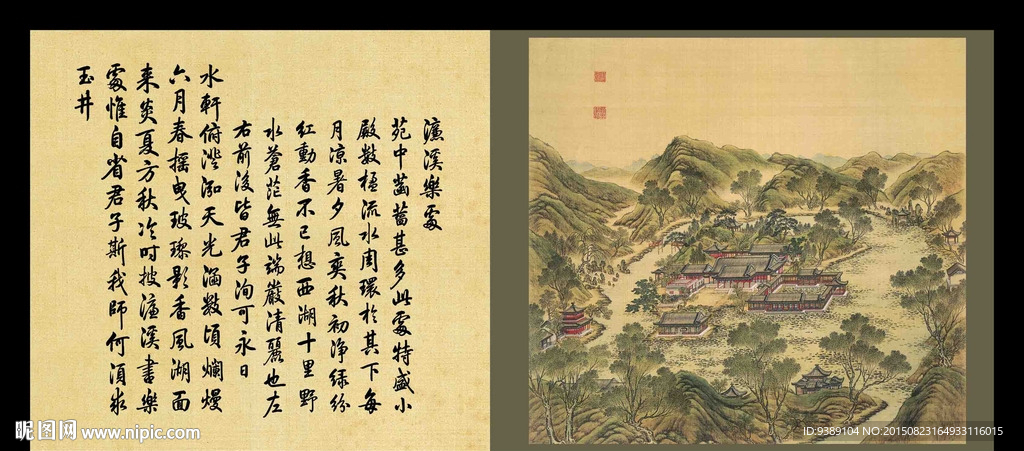 濂溪樂處
苑中菡萏甚多此處特盛小
殿數楹流水周環於其下每
月凉暑夕風爽秋初净綠紛
紅動香不已想西湖十里野
水蒼茫無此端嚴清麗也左
右前後皆君子洵可永日
水軒俯澄泓天光涵數頃爛熳
六月春搖曳玻瓈影香風湖面
來炎夏方秋冷時披濂溪書樂
處惟自省君子斯我師何須求
玉井
昵图网 www.nipic.com
ID:9389104 NO:20150823164933116015